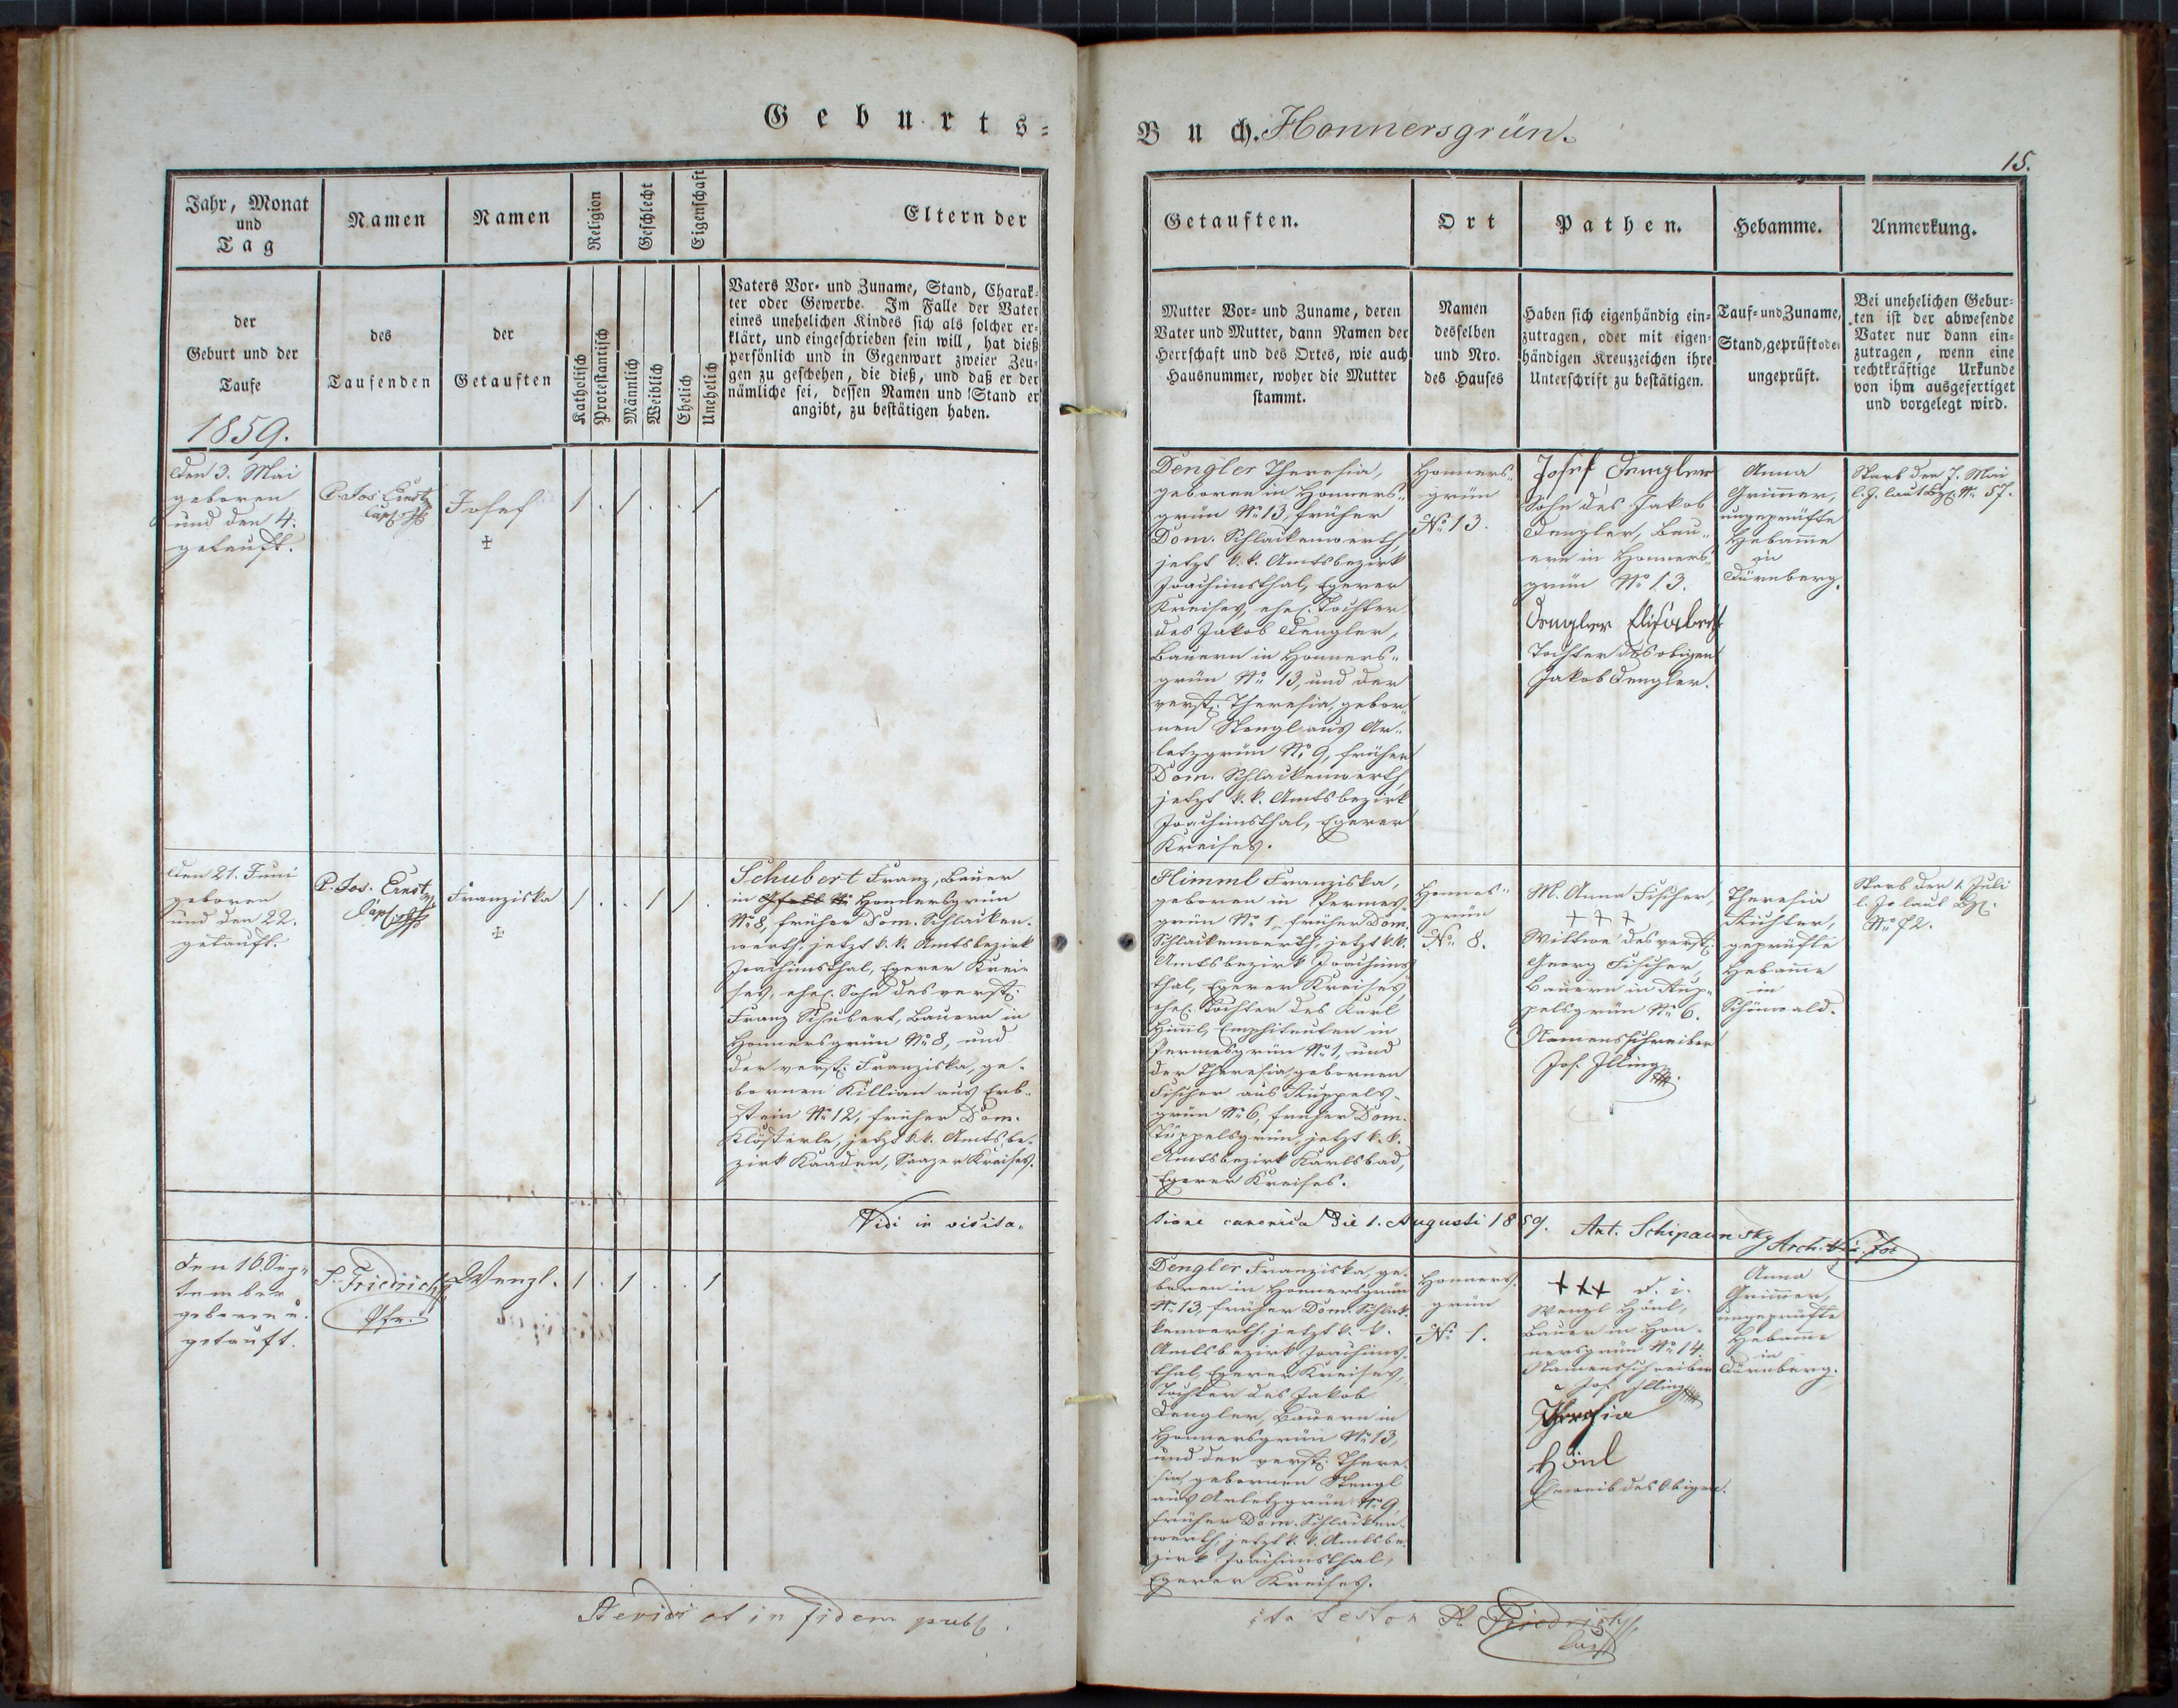 Geburts=
Buch. Honnersgrün.
15.
Jahr, Monat
und
Tag
Namen
Namen
Religion
Geschlecht
Eigenschaft
Eltern der
der
Geburt und der
Taufe
1859.
des
Taufenden
der
Getauften
Katholisch
Protestantisch
Männlich
Weiblich
Ehelich
Unehelich
Vaters Vor- und Zuname, Stand, Charak-
ter oder Gewerbe. Im Falle der Vater
eines unehelichen Kindes sich als solcher er-
klärt, und eingeschrieben sein will, hat dieß
persönlich und in Gegenwart zweier Zeu-
gen zu geschehen, die dieß, und daß er der
nämliche sei, dessen Namen und Stand er
angibt, zu bestätigen haben.
Getauften.
Ort
Pathen.
Hebamme.
Anmerkung.
Mutter Vor- und Zuname, deren
Vater und Mutter, dann Namen der
Herrschaft und des Ortes, wie auch
Hausnummer, woher die Mutter
stammt.
Namen
desselben
und Nro.
des Hauses
Haben sich eigenhändig ein-
zutragen, oder mit eigen-
händigen Kreuzzeichen ihre
Unterschrift zu bestätigen.
Tauf- und Zuname,
Stand, geprüft oder
ungeprüft.
Bei unehelichen Gebur-
ten ist der abwesende
Vater nur dann ein-
zutragen, wenn eine
rechtkräftige Urkunde
von ihm ausgefertiget
und vorgelegt wird.
den 3. Mai
geboren
und den 4.
getauft.
P. Jos. Ernst
Josef
1 . 1 . . 1
Dengler Theresia,
geboren in Honners-
grün No 13, früher
Dom. Schlackenwerth,
jetzt k. k. Amtsbezirk
Joachimsthal, Egerer
Kreises, ehel. Tochter
des Jakob Dengler,
Bauern in Honners-
grün No 13, und der
verst. Theresia, gebor-
nen Stengl aus Ar-
letzgrün No 9, früher
Dom. Schlackenwerth,
jetzt k. k. Amtsbezirk
Joachimsthal, Egerer
Kreises.
Honners-
grün
No 13.
Josef Dengler
Sohn des Jakob
Dengler, Bau-
ern in Honners-
grün No 13.
Dengler Elisabeth
Tochter des obigen
Jakob Dengler.
Anna
Grimmer,
ungeprüfte
Hebamme
in
Dürnberg.
Starb den 7. Mai
l. J. laut No 57.
den 21. Juni
geboren
und den 22.
getauft.
P. Jos. Ernst
Franziska
1 . . 1 1 .
Schubert Franz, Bauer
in Honnersgrün
No 8, früher Dom. Schlacken-
werth, jetzt k. k. Amtsbezirk
Joachimsthal, Egerer Krei-
ses, ehel. Sohn des verst.
Franz Schubert, Bauern in
Honnersgrün No 8, und
der verst. Franziska, ge-
bornen Killian aus Erb-
stein No 12, früher Dom.
Klösterle, jetzt k. k. Amtsbe-
zirk Kaaden, Saazer Kreises.
Himml Franziska,
geboren in Permes-
grün No 1, früher Dom.
Schlackenwerth, jetzt k. k.
Amtsbezirk Joachims-
thal, Egerer Kreises,
ehel. Tochter des Karl
Himml, Emphiteuten in
Permesgrün No 1, und
der Theresia, gebornen
Fischer aus Ruppels-
grün No 6, früher Dom.
Tüppelsgrün, jetzt k. k.
Amtsbezirk Karlsbad,
Egerer Kreises.
Honners-
grün
No 8.
M. Anna Fischer,
+ + +
Wittwe des verst.
Georg Fischer,
Bauern in Rup-
pelsgrün No 6.
Namensschreiber
Jos. Illing
Theresia
Richter,
geprüfte
Hebamme
in
Schönwald.
Starb den 1. Juli
l. J. laut
No 72.
Vidi in visita-
tione canonica die 1. Augusti 1859. Ant. Schipaunsky
den 16. Sep-
tember
geboren u.
getauft.
Friedrich
Pfr.
Wenzl.
1 . 1 . . 1
Dengler Franziska, ge-
boren in Honnersgrün
No 13, früher Dom. Schlak-
kenwerth, jetzt k. k.
Amtsbezirk Joachims-
thal, Egerer Kreises,
Tochter des Jakob
Dengler, Bauern in
Honnersgrün No 13,
und der verst. There-
sia, gebornen Stengl
aus Arletzgrün No 9,
früher Dom. Schlacken-
werth, jetzt k. k. Amtsbe-
zirk Joachimsthal,
Egerer Kreises.
Honners-
grün
No 1.
+++ d. i.
Wenzl Hönl,
Bauer in Hon-
nersgrün No 14.
Namensschreiber
Jos. Illing
Theresia
Hönl
Eheweib des Obigen.
Anna
Grimmer,
ungeprüfte
Hebamme
in
Dürnberg.
et in fidem publ.
Friedrich